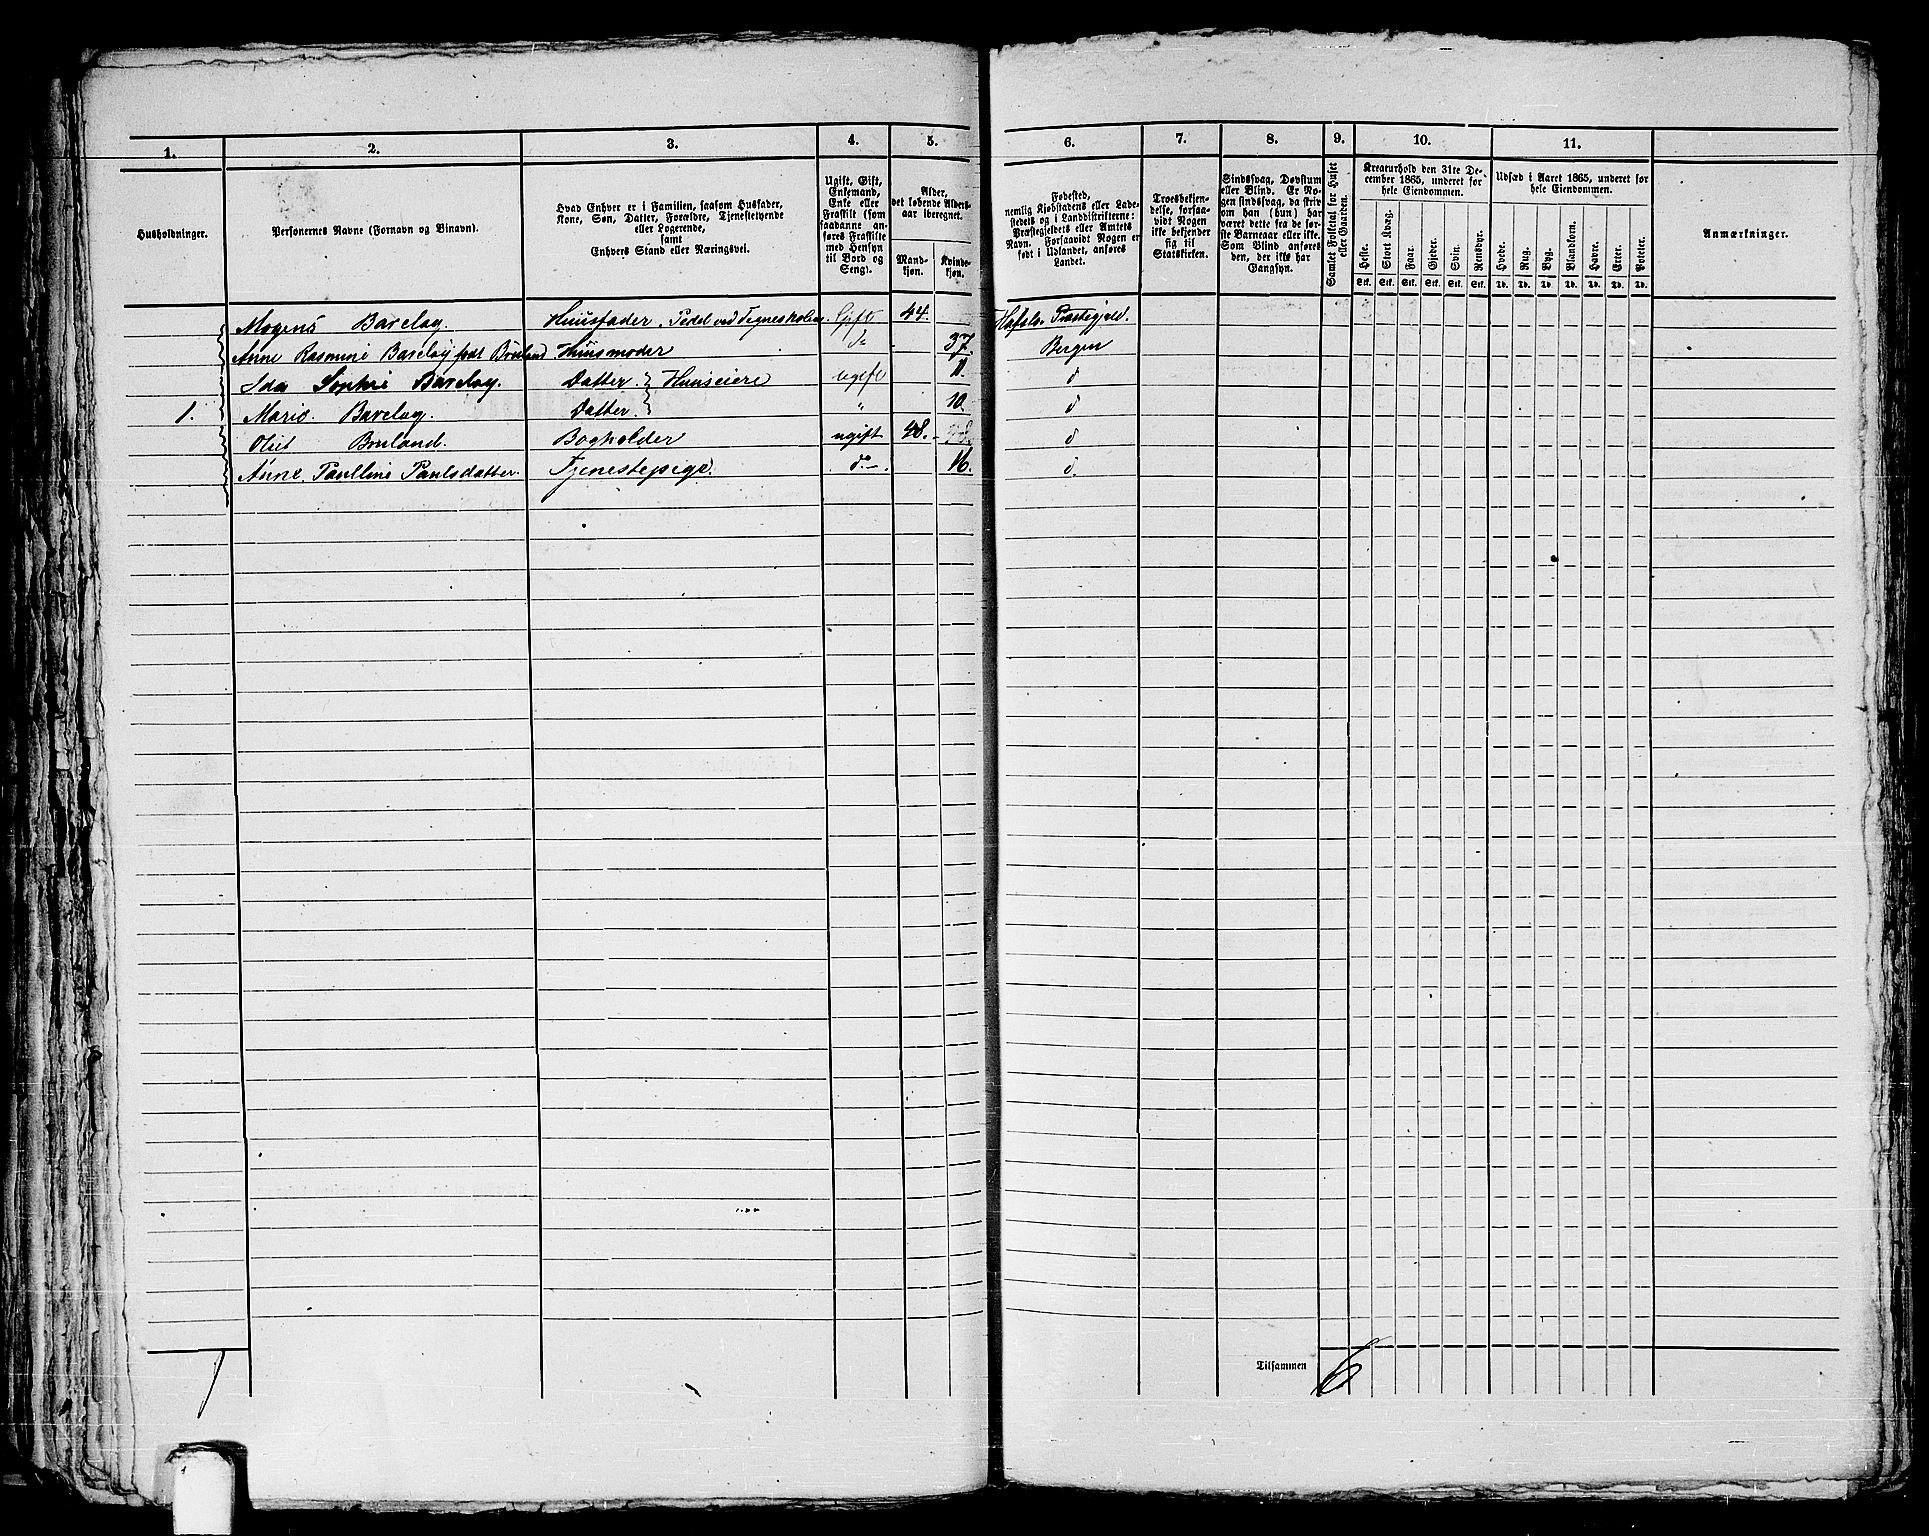 1. 2. 3. 4. 5. 6. 7. 8. 9. 10. 11.
Husholdninger.
Personernes Navne (Fornavn og Binavn).
Hvad Enhver er i Familien, saasom Husfader,
Kone, Søn, Datter, Forældre, Tjenestetyende
eller Logerende,
samt
Enhvers Stand eller Næringsvei.
Ugift, Gift,
Enkemand,
Enke eller
Fraskilt (som
saadanne an-
føres Fraskilte
med Hensyn
til Bord og
Seng).
Alder,
det løbende Alders-
aar iberegnet.
Mand-
kjøn.
Kvinde-
kjøn.
Fødested,
nemlig Kjøbstadens eller Lade-
stedets eller i Landdistrikterne:
Præstegjeldets eller Amtets
Navn. Forsaavidt Nogen er
født i Udlandet, anføres
Landet.
Troesbekjen-
delse, forsaa-
vidt Nogen
ikke bekjender
sig til
Statskirken.
Sindssvag, Døvstum
eller Blind. Er No-
gen sindssvag, da skriv
om han (hun) har
været dette fra de før-
ste Barneaar eller ikke.
Som Blind anføres
den, der ikke har
Gangsyn.
Samlet Folketal for Huset
eller Gaarden.
Kreaturhold den 31te De-
cember 1865, underet for
hele Eiendommen.
Heste. Stort Kvæg. Faar. Gjeder. Svin. Rensdyr.
Stk. Stk. Stk. Stk. Stk. Stk.
Udsæd i Aaret 1865, underet for
hele Eiendommen.
Hvede. Rug. Byg. Blandkorn. Havre. Erter. Poteter.
Td. Td. Td. Td. Td. Td. Td.
Anmærkninger.
Mogens Barclay. Huusfader, Pedel ved Tegneskolen Gift 44. Præstegjeld.
Anne Rasmine Barclay født Bruland Huusmoder do 37. Bergen
Ida Sophie Barclay. Datter } Huuseiere ugift 11. d
1. Marie Barclay. Datter. } " 10. d
Bruland. Bogholder ugift 48. d
Anne Paulline Paulsdatter. Tjenestepige. do 16. d.
Tilsammen 6
1